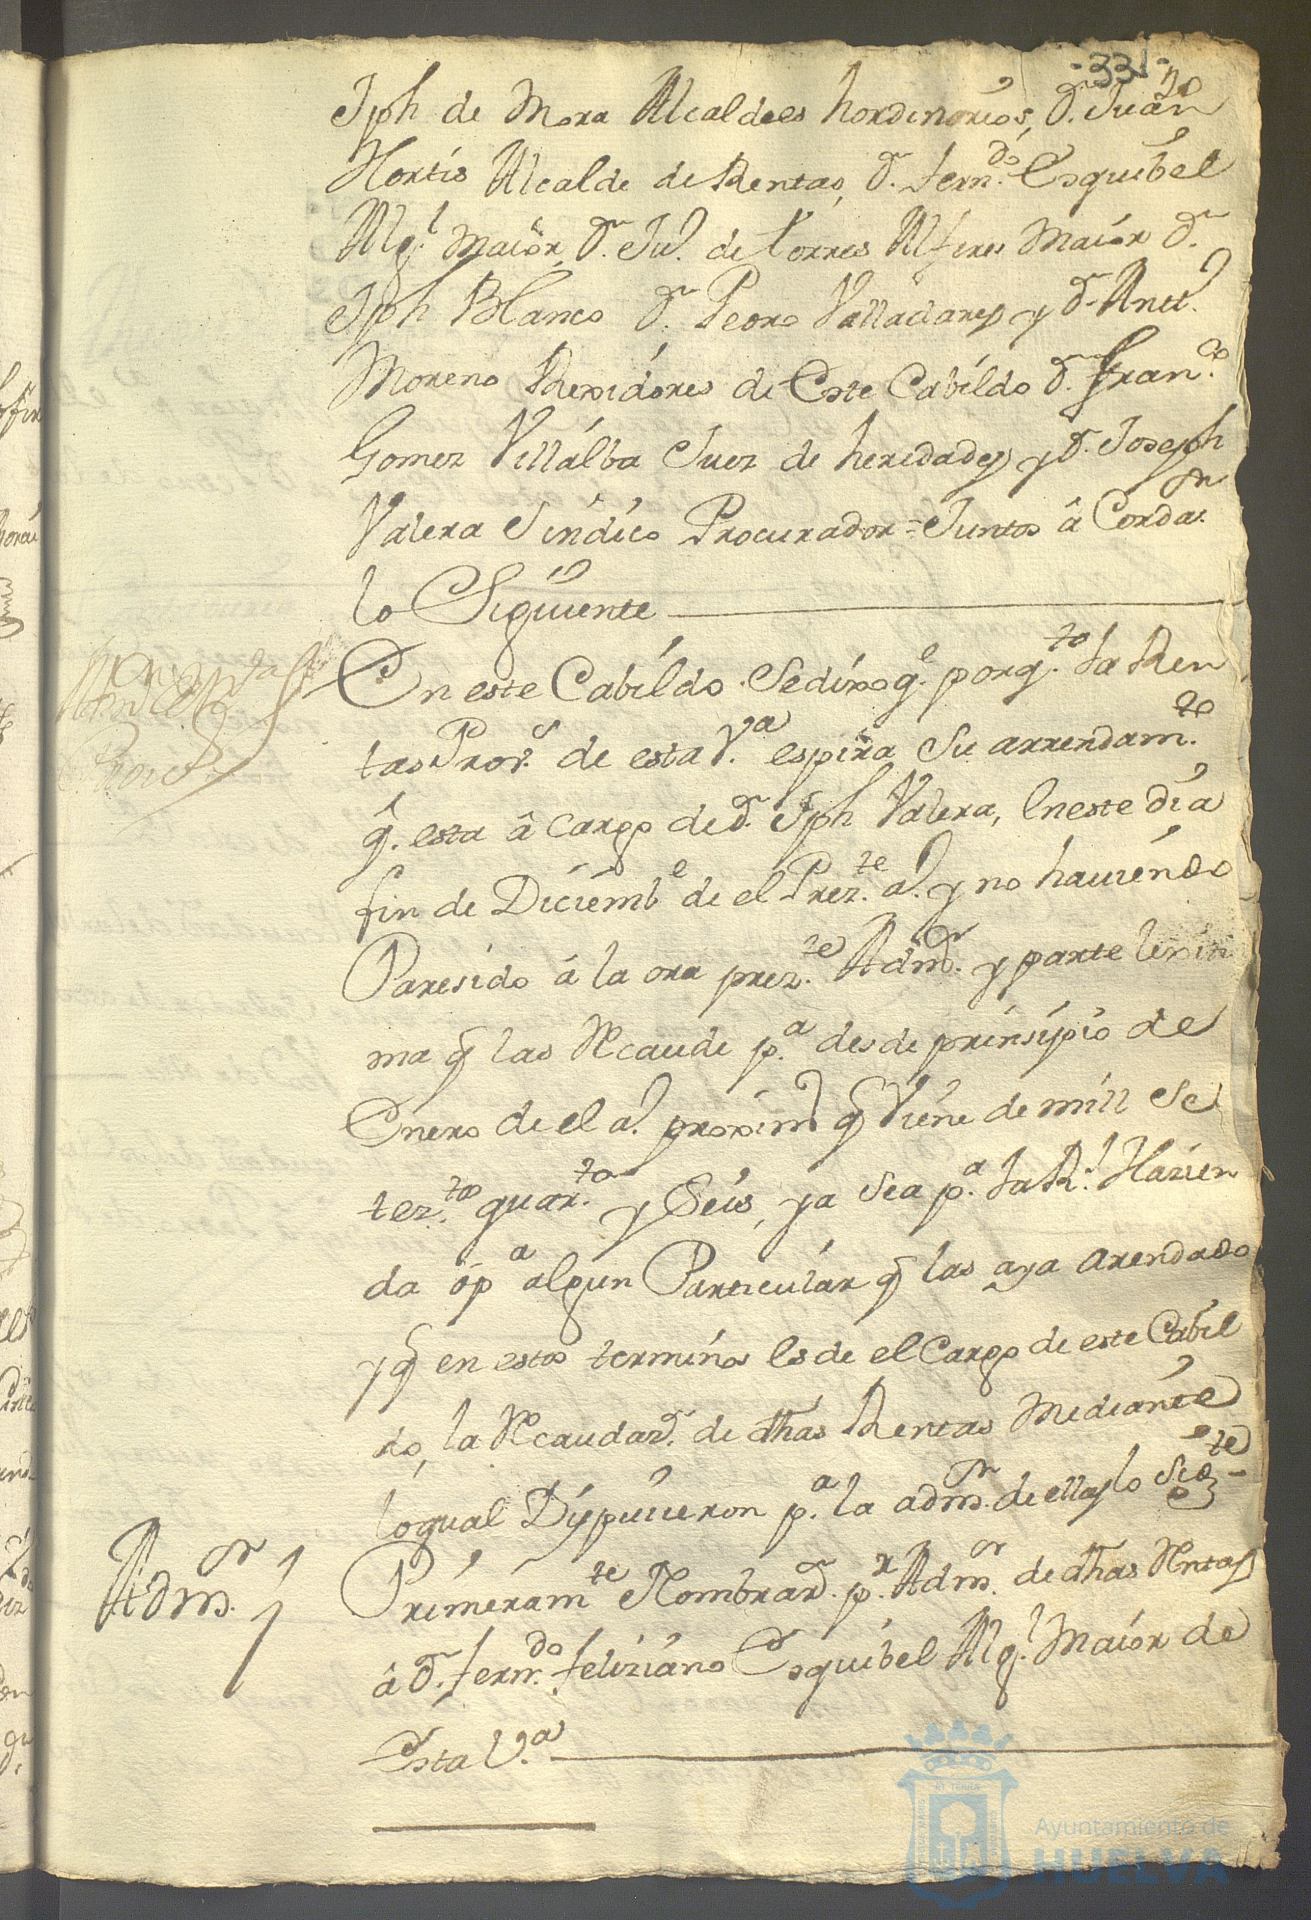 -331-
Jph de Mora Alcaldes hordinarios, Dn. Juan
Hortis Alcalde de Rentas, Dn. Fern.do Esquibel
Alg.l Maior, Dn. Ju.o de torres Alferes Maior Dn.
Jph Blanco Dn. Pedro Valladares y Dn. Antt.o
Moreno Rexidores de Este Cabildo Dn. Fran.co
Gomez Villalba Juez de heredades y Dn. Joseph
Valera Sindico Procurador = Juntos â Cordar.n
lo Siguiente
En este Cabildo Sedixo q.e porq.to la Ren
tas Prov.s de esta V.a espira Su arrendam.to
q.e esta â Cargo de Dn. Jph Valera, Eneste dia
fin de Diciemb.e de el Prez.te a.o y no haviendo
Paresido â la ora prez.te Adm.or y parte lexiti
ma q las Recaude p.a desde prinsipio de
Enero de el a.o proximo q Viene de mill Se
tez.tos quar.ta y Seis, ya Sea p.a la R.l Hazien
da o p.a algun Particular q las aya arendado
y q en estos terminos Es de el Cargo de este Cabil
do, la Recaudaz.n de dhas Rentas Mediante
loqual Dispusieron p.a la adm.on de ellas lo Sig.te
Adm.or
Primeram.te Nombrar.n p.r Adm.or de dhas Rentas
â Dn. Fern.do Feliziano Esquibel Alg.l Maior de
Esta V.a
Ayuntamiento de
HUELVA